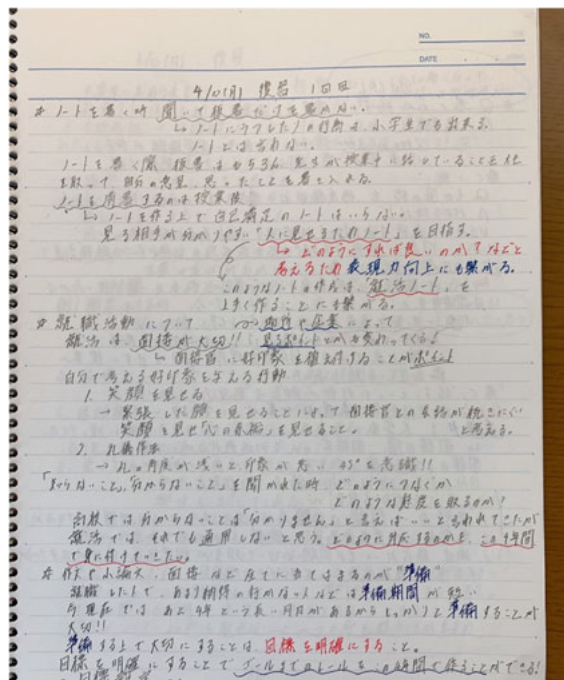 NO.
DATE
4/10(月) 復習 1回目
* ノートを書く時 聞いて板書だけを書かない。
↳ ノートにうつしたりの行動は、小学生でも出来る。
ノートとは言わない。
ノートを書く際、板書はもちろん、先生が授業中に話っていることを
取って、自分の意見、思ったことを書き入れる。
ノートを清書するのは授業後
↳ ノートを作る上で自己満足のノートはいらない。
見る相手が分かりやすい「人に見せるためノート」を目指す。
↳ どのようにすれば良いのか てなどと
考えるため 表現力向上にも繋がる。
このようなノートの作成は、就活ノート を
上手く作ることにも繋がる。
* 就職活動について 企業によって
就活は面接が大切!! 見るポイントとかも変わってくる!
↳ 面接官に好印象を植え付けることがポイント
自分で考える好印象を与える行動
1. 笑顔を見せる
→ 緊張した顔を見せることによって面接官との会話が続きにくい
笑顔を見せ「心の余裕」を見せること。 と思える。
2. 礼儀作法
→ 礼の角度が浅いと印象が悪い 45°を意識!!
「知らないこと」「分からないこと」を聞かれた時、どのようにつなぐか
どのような態度を取るのか?
では分からないことは「分かりません」と言えばいいと言われてきたが
就活では、それでも通用しないと思う。どのように対応するのかを、この4年間
で身に付けていきたい。
* 作文や小論文、面接など全てに当てはまるのが"準備"
就職した人で、あまり納得の行かない人などは準備期間が短い
今現在では、あと4年という長い月日があるからしっかりと準備することが
大切!!
準備する上で大切にすることは、目標を明確にすること。
目標を明確にすることでゴールまでのレールをこの4年間で作ることができる!